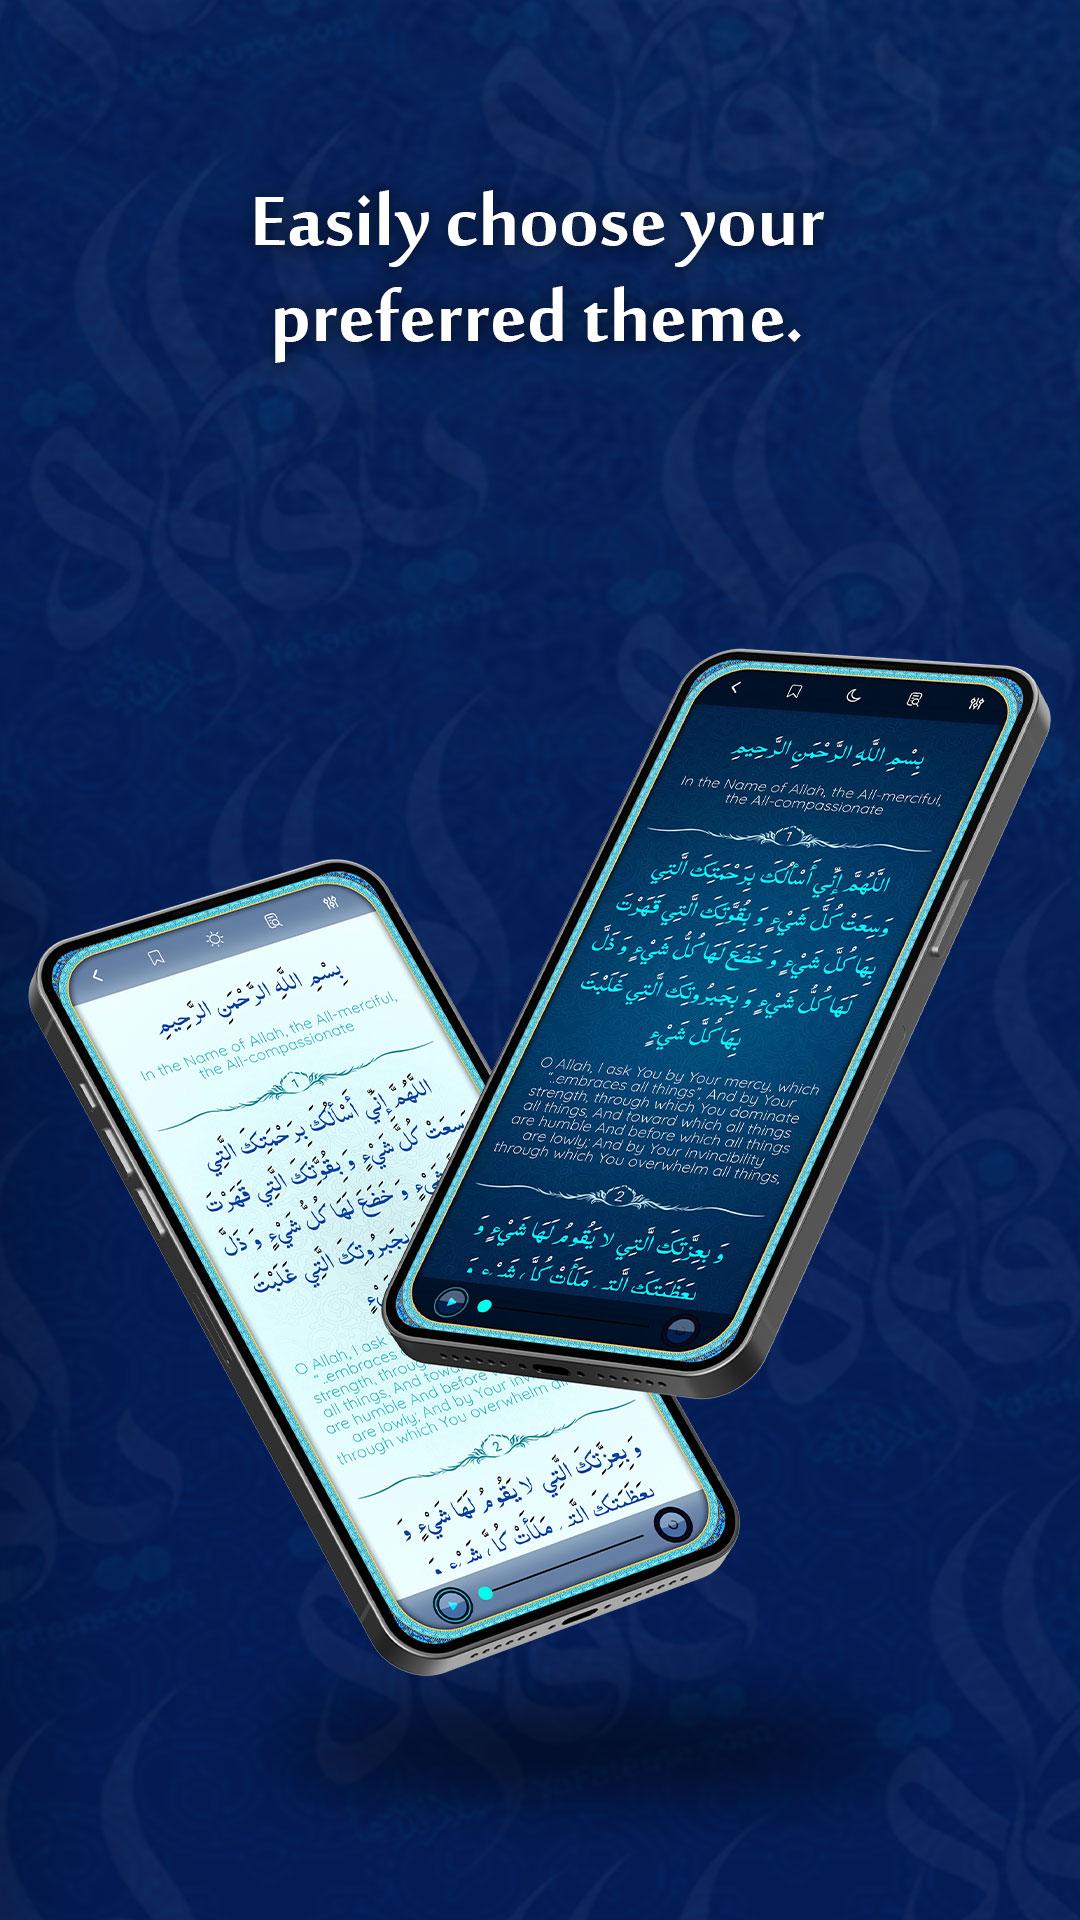 Easily choose your
preferred theme.
بِسْمِ اللَّهِ الرَّحْمَنِ الرَّحِيمِ
In the Name of Allah, the All-merciful,
the All-compassionate
1
اللَّهُمَّ إِنِّي أَسْأَلُكَ بِرَحْمَتِكَ الَّتِي
وَسِعَتْ كُلَّ شَيْءٍ وَ بِقُوَّتِكَ الَّتِي قَهَرْتَ
بِهَا كُلَّ شَيْءٍ وَ خَضَعَ لَهَا كُلُّ شَيْءٍ وَ ذَلَّ
لَهَا كُلُّ شَيْءٍ وَ بِجَبَرُوتِكَ الَّتِي غَلَبْتَ
بِهَا كُلَّ شَيْءٍ
O Allah, I ask You by Your mercy, which
"..embraces all things"; And by Your
strength, through which You dominate
all things, And toward which all things
are humble And before which all things
are lowly; And by Your invincibility
through which You overwhelm all things,
2
وَ بِعِزَّتِكَ الَّتِي لا يَقُومُ لَهَا شَيْءٌ وَ
بِعَظَمَتِكَ الَّتِي مَلَأَتْ كُلَّ شَيْءٍ وَ
بِسْمِ اللَّهِ الرَّحْمَنِ الرَّحِيمِ
In the Name of Allah, the All-merciful,
the All-compassionate
1
اللَّهُمَّ إِنِّي أَسْأَلُكَ بِرَحْمَتِكَ الَّتِي
وَسِعَتْ كُلَّ شَيْءٍ وَ بِقُوَّتِكَ الَّتِي قَهَرْتَ
شَيْءٍ وَ خَضَعَ لَهَا كُلُّ شَيْءٍ وَ ذَلَّ
بِجَبَرُوتِكَ الَّتِي غَلَبْتَ
O Allah, I ask
"..embraces
strength, throug
all things, And towa
are humble And before
are lowly; And by Your inv
through which You overwhelm al
2
وَ بِعِزَّتِكَ الَّتِي لا يَقُومُ لَهَا شَيْءٌ وَ
بِعَظَمَتِكَ الَّتِي مَلَأَتْ كُلَّ شَيْءٍ وَ